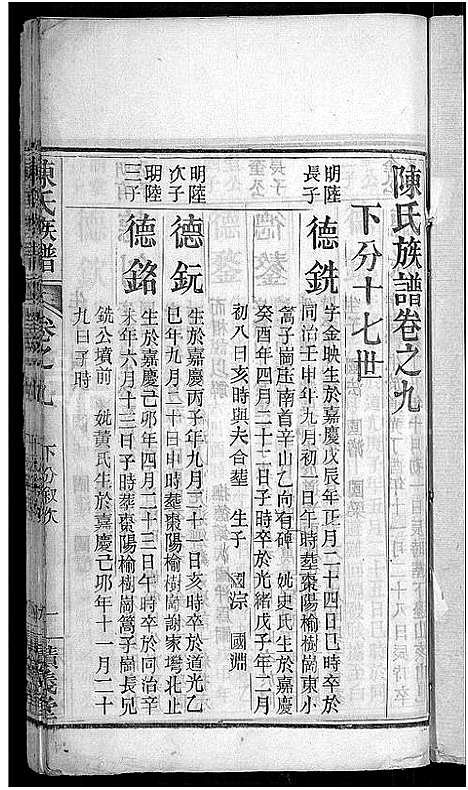 陳氏族譜卷之九
下分十七世
明陸
長子
德銑
字金映生於嘉慶戊辰年正月二十四日巳時卒於
同治壬申年九月初一日午時葬棗陽榆樹崗東小
篙子崗庄南首辛山乙向有碑 妣史氏生於嘉慶
癸酉年四月二十二日子時卒於光緒戊子年二月
初八日亥時與夫合葬 生子 國淙 國淵
明陸
次子
德鈨
生於嘉慶丙子年九月二十一日亥時卒於道光乙
巳年九月二十日申時葬棗陽榆樹崗謝家塆北止
明陸
三子
德銘
生於嘉慶己卯年四月二十三日午時卒於同治辛
未年六月十三日子時葬棗陽榆樹崗篙子崗長兄
銑公墳前 妣黃氏生於嘉慶己卯年十一月二十
九日子時
陳氏族譜
卷之九
下分叙次
一